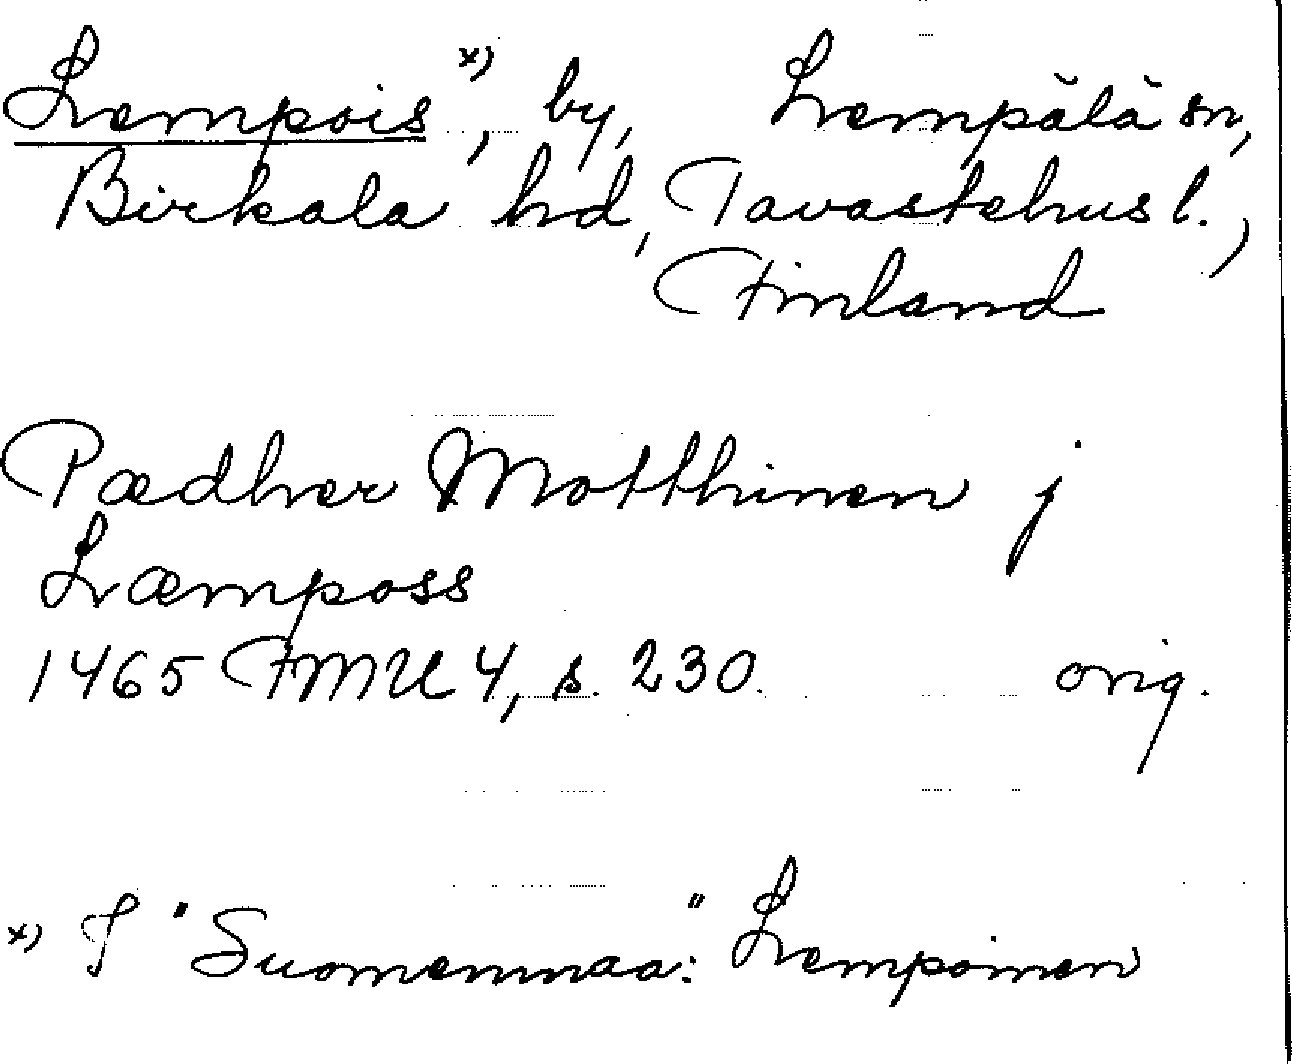 Lempois x), by, Lempälä sn,
Birkala hd, Tavastehus l.,
Finland
Pædher Motthinen j
Læmposs
1465 FMU 4, s. 230. orig.
x) I "Suomenmaa": Lempoinen